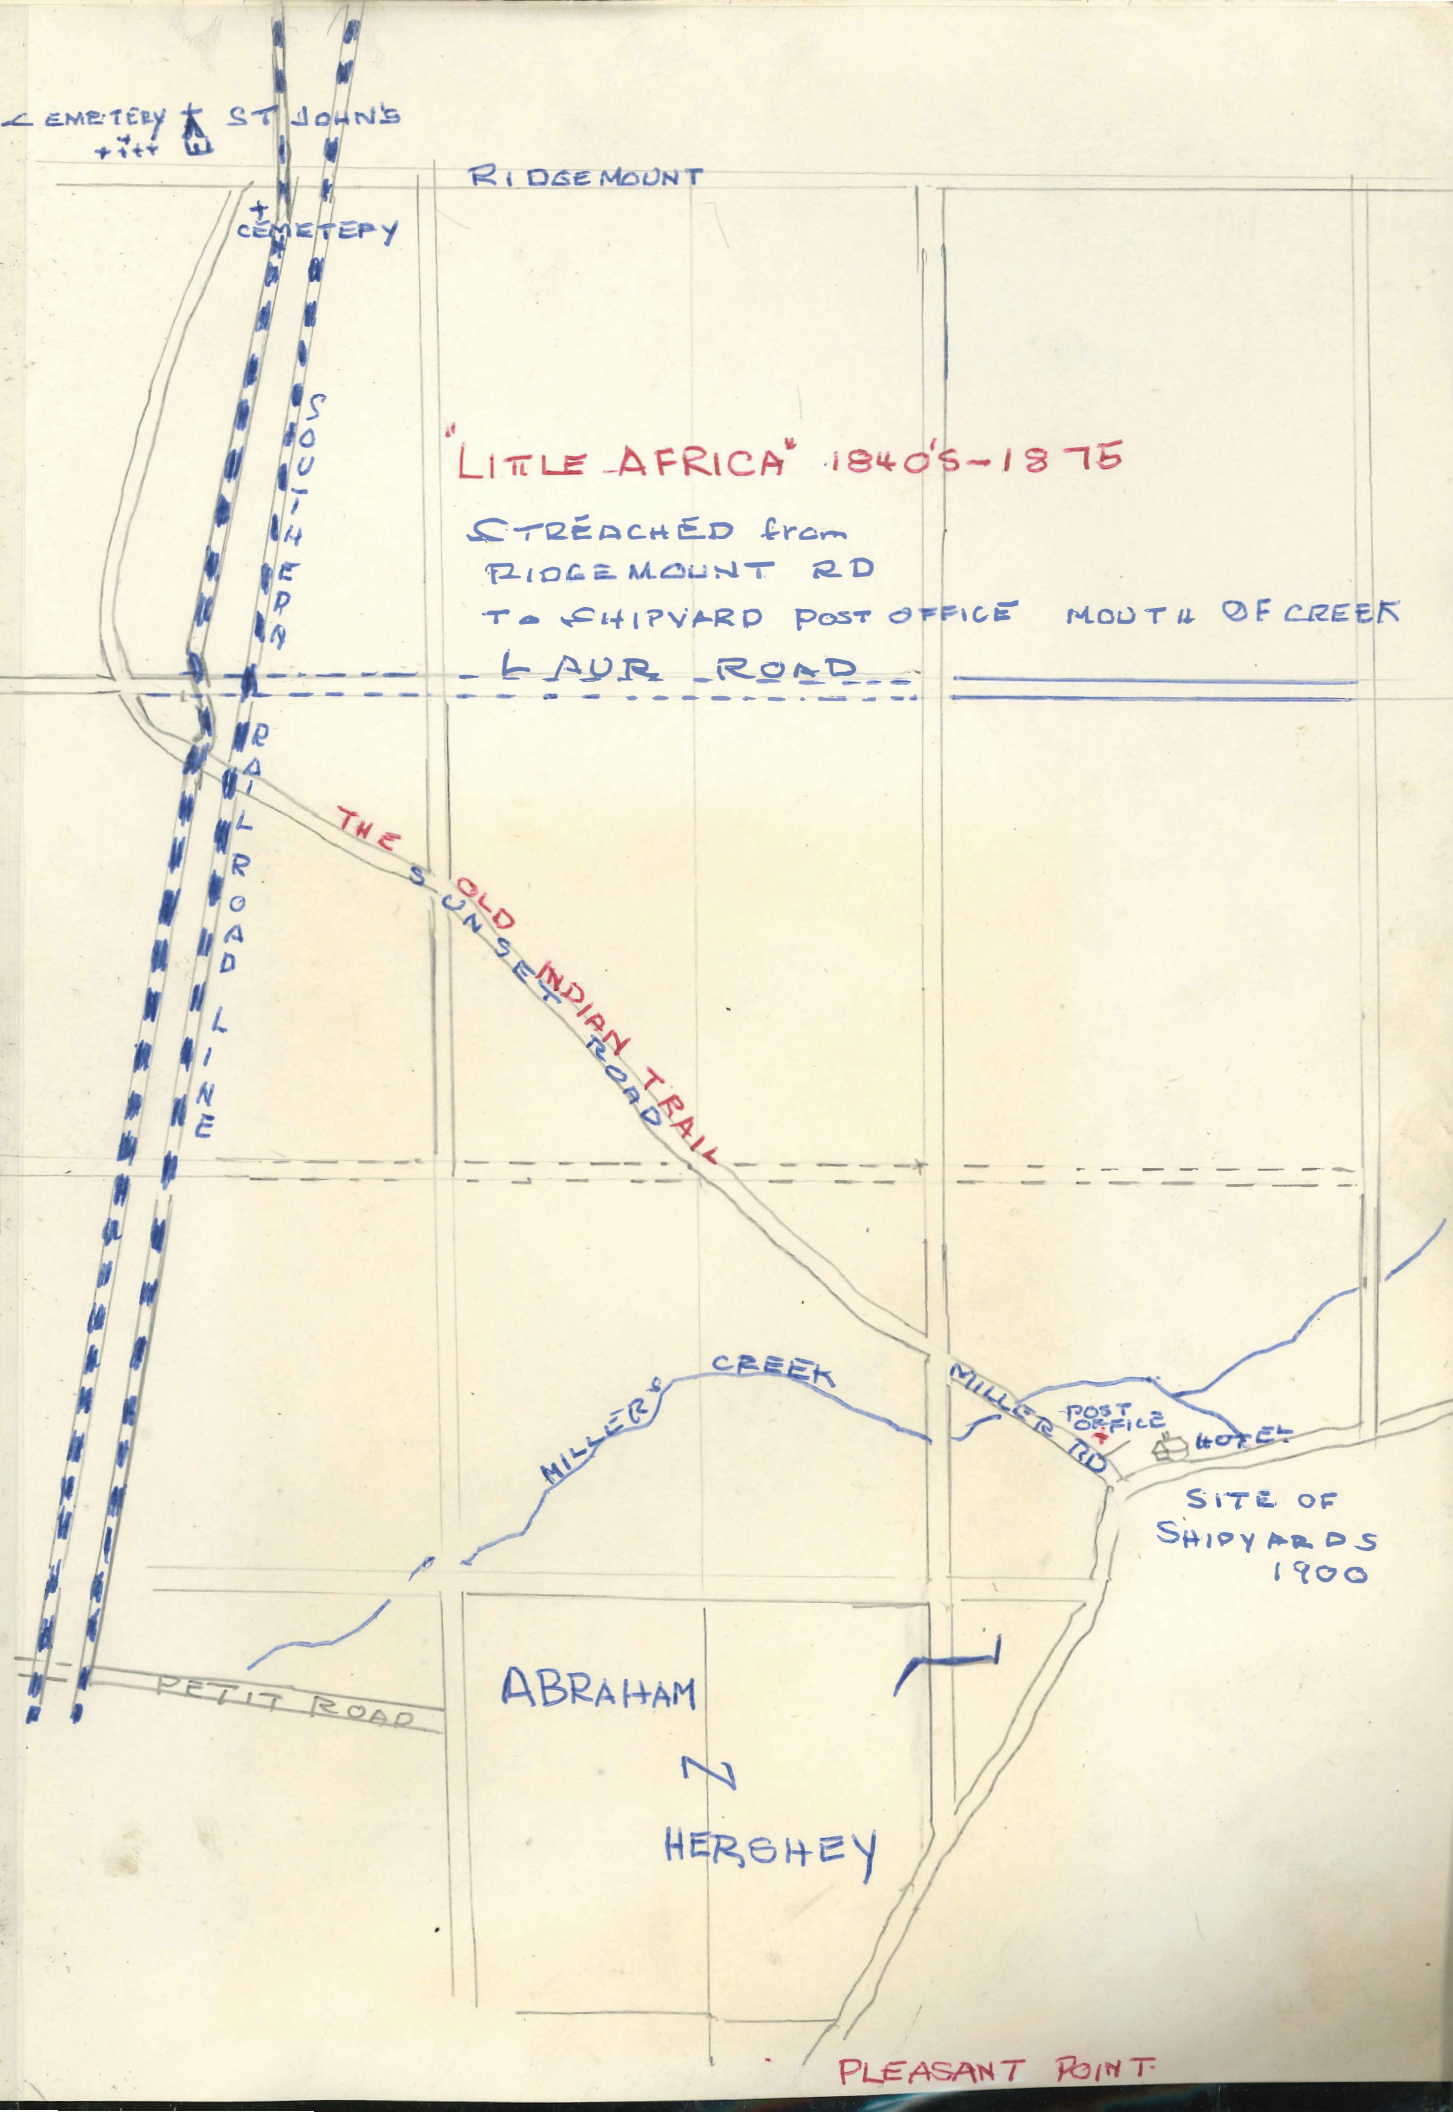 CEMETERY ST JOHN'S
RIDGEMOUNT
CEMETERY
SOUTHERN RAILROAD LINE
"LITTLE AFRICA" 1840'S-1875
STREACHED from
RIDGEMOUNT RD
To SHIPYARD POST OFFICE MOUTH OF CREEK
LAUR ROAD
THE OLD INDIAN TRAIL
SUNSET ROAD
MILLER'S CREEK
MILLER RD
POST
OFFICE
HOTEL
SITE OF
SHIPYARDS
1900
PETIT ROAD
ABRAHAM
N
HERSHEY
PLEASANT POINT.